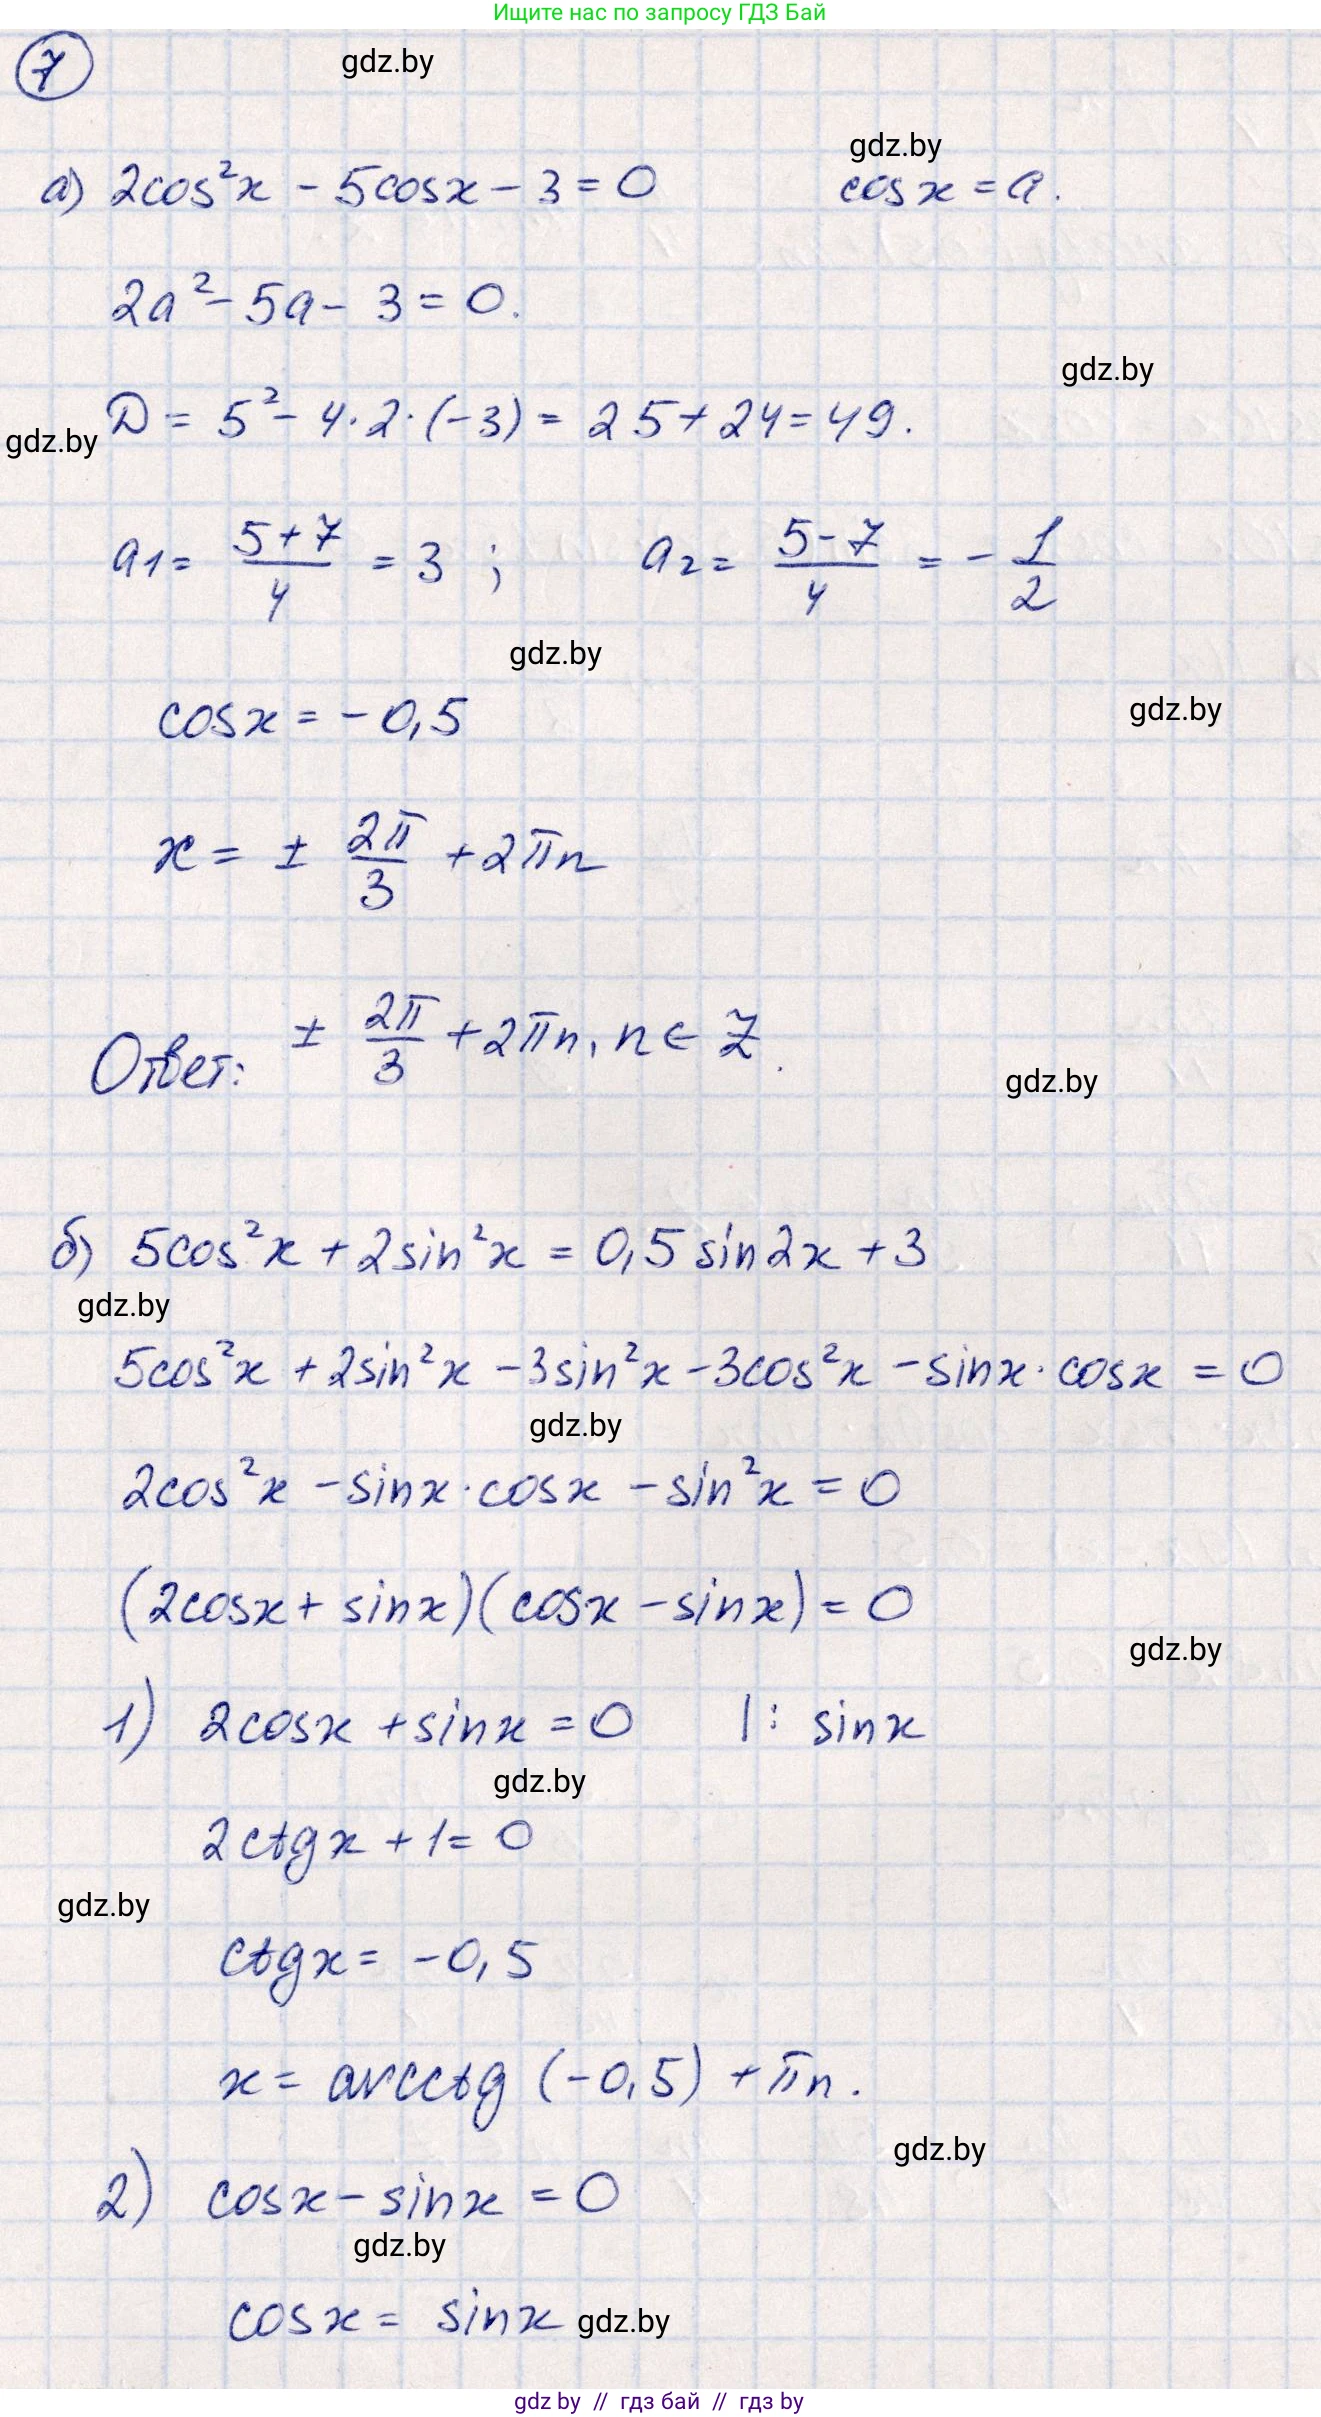 Ищите нас по запросу ГДЗ Бай
7
gdz.by
gdz.by
а) 2cos²x - 5cosx - 3 = 0 cosx = a.
2a² - 5a - 3 = 0.
gdz.by
D = 5² - 4·2·(-3) = 25 + 24 = 49.
gdz.by
a₁ = (5+7)/4 = 3 ; a₂ = (5-7)/4 = -1/2
gdz.by
gdz.by
cosx = -0,5
x = ± 2π/3 + 2πn
Ответ: ± 2π/3 + 2πn, n ∈ Z.
gdz.by
б) 5cos²x + 2sin²x = 0,5 sin2x + 3
gdz.by
5cos²x + 2sin²x - 3sin²x - 3cos²x - sinx·cosx = 0
gdz.by
2cos²x - sinx·cosx - sin²x = 0
(2cosx + sinx)(cosx - sinx) = 0
gdz.by
1) 2cosx + sinx = 0 |: sinx
gdz.by
2ctgx + 1 = 0
gdz.by
ctgx = -0,5
x = arcctg (-0,5) + πn.
gdz.by
2) cosx - sinx = 0
gdz.by
cosx = sinx
gdz.by
gdz by // гдз бай // гдз by